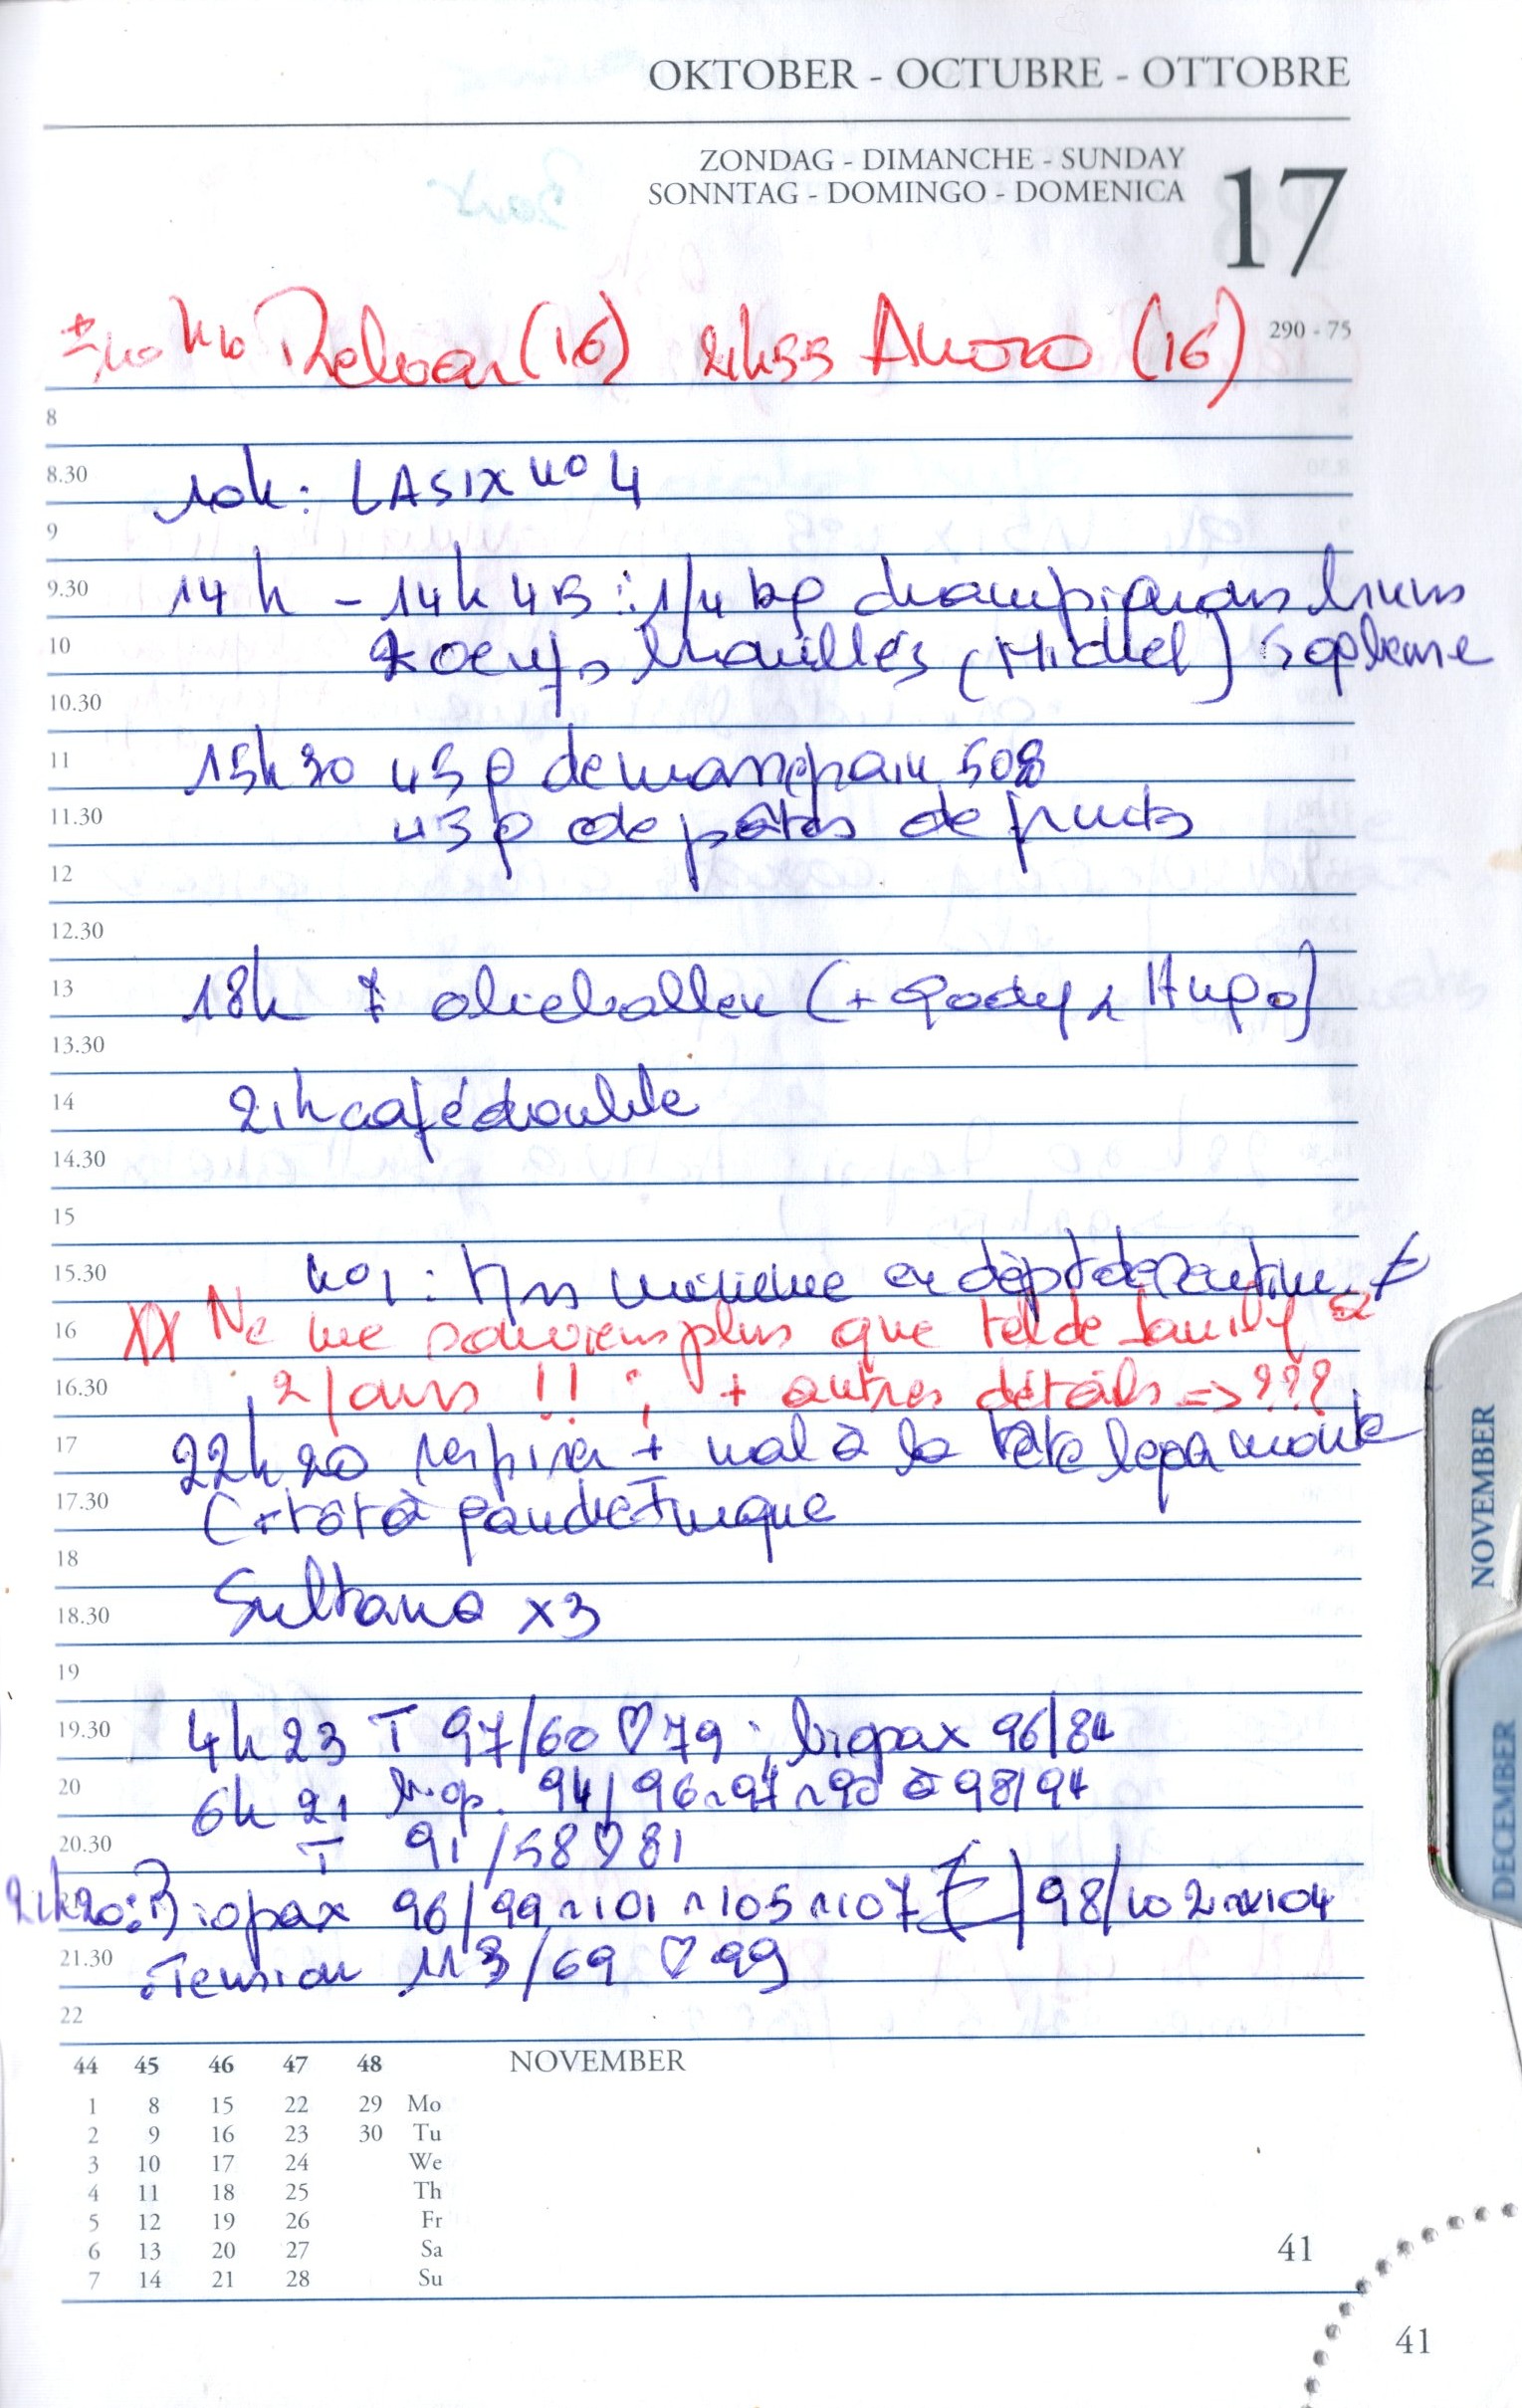 OKTOBER - OCTUBRE - OTTOBRE
ZONDAG - DIMANCHE - SUNDAY
SONNTAG - DOMINGO - DOMENICA
17
290 - 75
(16) 21h55 (16)
8
8.30
10h : LASIX n° 4
9
9.30
14h - 14h45 : 1/4 kg champignons bruns
10
2 oeufs brouillés (Michel)
10.30
11
15h30 45 g de massepain 508
11.30
45 g de pâtes de fruits
12
12.30
13
18h 7 oliebollen (+ Gody & Hugo)
13.30
14
21h café double
14.30
15
15.30
n°1 :
16
XX Ne me souviens plus que tel de family a
16.30
21 ans !! ; + autres détails => ???
17
22h20 respirer + mal à la tête
17.30
18
Sultana x3
18.30
19
19.30
4h23 T 97/60 ♡ 79 ; biopax 96/84
20
6h21 biop. 94/96 à 98/94
20.30
T 91/58 ♡ 81
21h20 : Biopax 96/99 ~ 101 ~ 105 ~ 107 98/102 104
21.30
: Tension 113/69 ♡ 99
22
44 45 46 47 48 NOVEMBER
1 8 15 22 29 Mo
2 9 16 23 30 Tu
3 10 17 24 We
4 11 18 25 Th
5 12 19 26 Fr
6 13 20 27 Sa
7 14 21 28 Su
41
41
NOVEMBER
DECEMBER